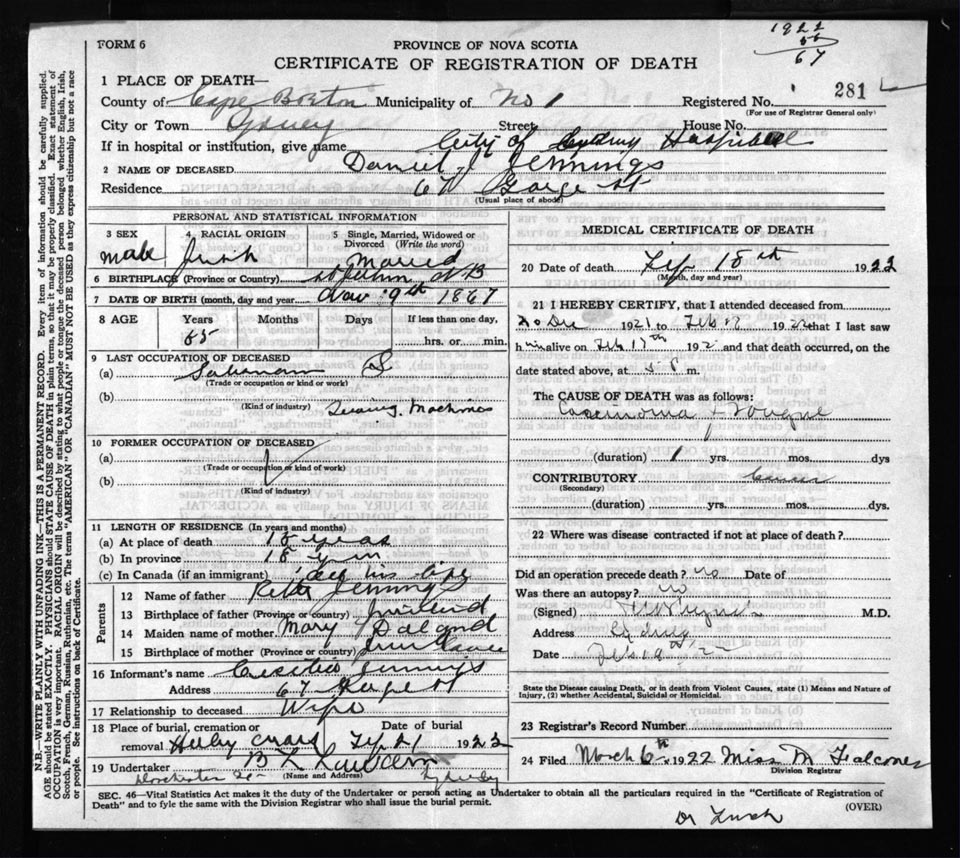 1922
55
67
FORM 6
PROVINCE OF NOVA SCOTIA
CERTIFICATE OF REGISTRATION OF DEATH
1 PLACE OF DEATH—
County of Cape Breton Municipality of No 1 Registered No. 281
(For use of Registrar General only)
City or Town Sydney Street House No.
If in hospital or institution, give name City of Sydney Hospital
2 NAME OF DECEASED Daniel J Jennings
Residence 67 George St
(Usual place of abode)
PERSONAL AND STATISTICAL INFORMATION
3 SEX 4 RACIAL ORIGIN 5 Single, Married, Widowed or Divorced (Write the word)
male Irish Married
6 BIRTHPLACE (Province or Country) St John N B
7 DATE OF BIRTH (month, day and year) Nov 9th 1867
8 AGE Years Months Days If less than one day,
55 hrs. or min.
9 LAST OCCUPATION OF DECEASED
(a) Salesman
(Trade or occupation or kind of work)
(b) Sewing Machines
(Kind of industry)
10 FORMER OCCUPATION OF DECEASED
(a)
(Trade or occupation or kind of work)
(b)
(Kind of industry)
11 LENGTH OF RESIDENCE (In years and months)
(a) At place of death 18 years
(b) In province 18 years
(c) In Canada (if an immigrant) all his life
Parents
12 Name of father Peter Jennings
13 Birthplace of father (Province or country) Ireland
14 Maiden name of mother Mary
15 Birthplace of mother (Province or country)
16 Informant's name Jennings
Address 67 George St
17 Relationship to deceased Wife
18 Place of burial, cremation or removal Holy Cross Date of burial Feb 21 1922
19 Undertaker
(Name and Address)
Dorchester St Sydney
MEDICAL CERTIFICATE OF DEATH
20 Date of death Feb 18th 1922
(Month, day and year)
21 I HEREBY CERTIFY, that I attended deceased from
20 Dec 1921 to Feb 18 1922 that I last saw
him alive on Feb 17th 192 and that death occurred, on the
date stated above, at m.
The CAUSE OF DEATH was as follows:
Carcinoma Tongue
(duration) 1 yrs. mos. dys
CONTRIBUTORY
(Secondary)
(duration) yrs. mos. dys
22 Where was disease contracted if not at place of death?
Did an operation precede death? no Date of
Was there an autopsy? no
(Signed) M.D.
Address Sydney
Date Feb 19th 22
State the Disease causing Death, or in death from Violent Causes, state (1) Means and Nature of Injury, (2) whether Accidental, Suicidal or Homicidal.
23 Registrar's Record Number
24 Filed March 6th 1922 Miss M Falconer
Division Registrar
SEC. 46—Vital Statistics Act makes it the duty of the Undertaker or person acting as Undertaker to obtain all the particulars required in the "Certificate of Registration of Death" and to fyle the same with the Division Registrar who shall issue the burial permit.
(OVER)
Dr Lynch
N.B.—WRITE PLAINLY WITH UNFADING INK—THIS IS A PERMANENT RECORD. Every item of information should be carefully supplied.
AGE should be stated EXACTLY. PHYSICIANS should STATE CAUSE OF DEATH in plain terms, so that it may be properly classified. Exact statement of
OCCUPATION is very important. RACIAL ORIGIN will be described by stating to what people or tongue the deceased person belonged whether English, Irish,
Scotch, French, German, Russian, Ruthenian, etc. The terms "AMERICAN" OR "CANADIAN" MUST NOT BE USED as they express citizenship but not a race
or people. See instructions on back of Certificate.